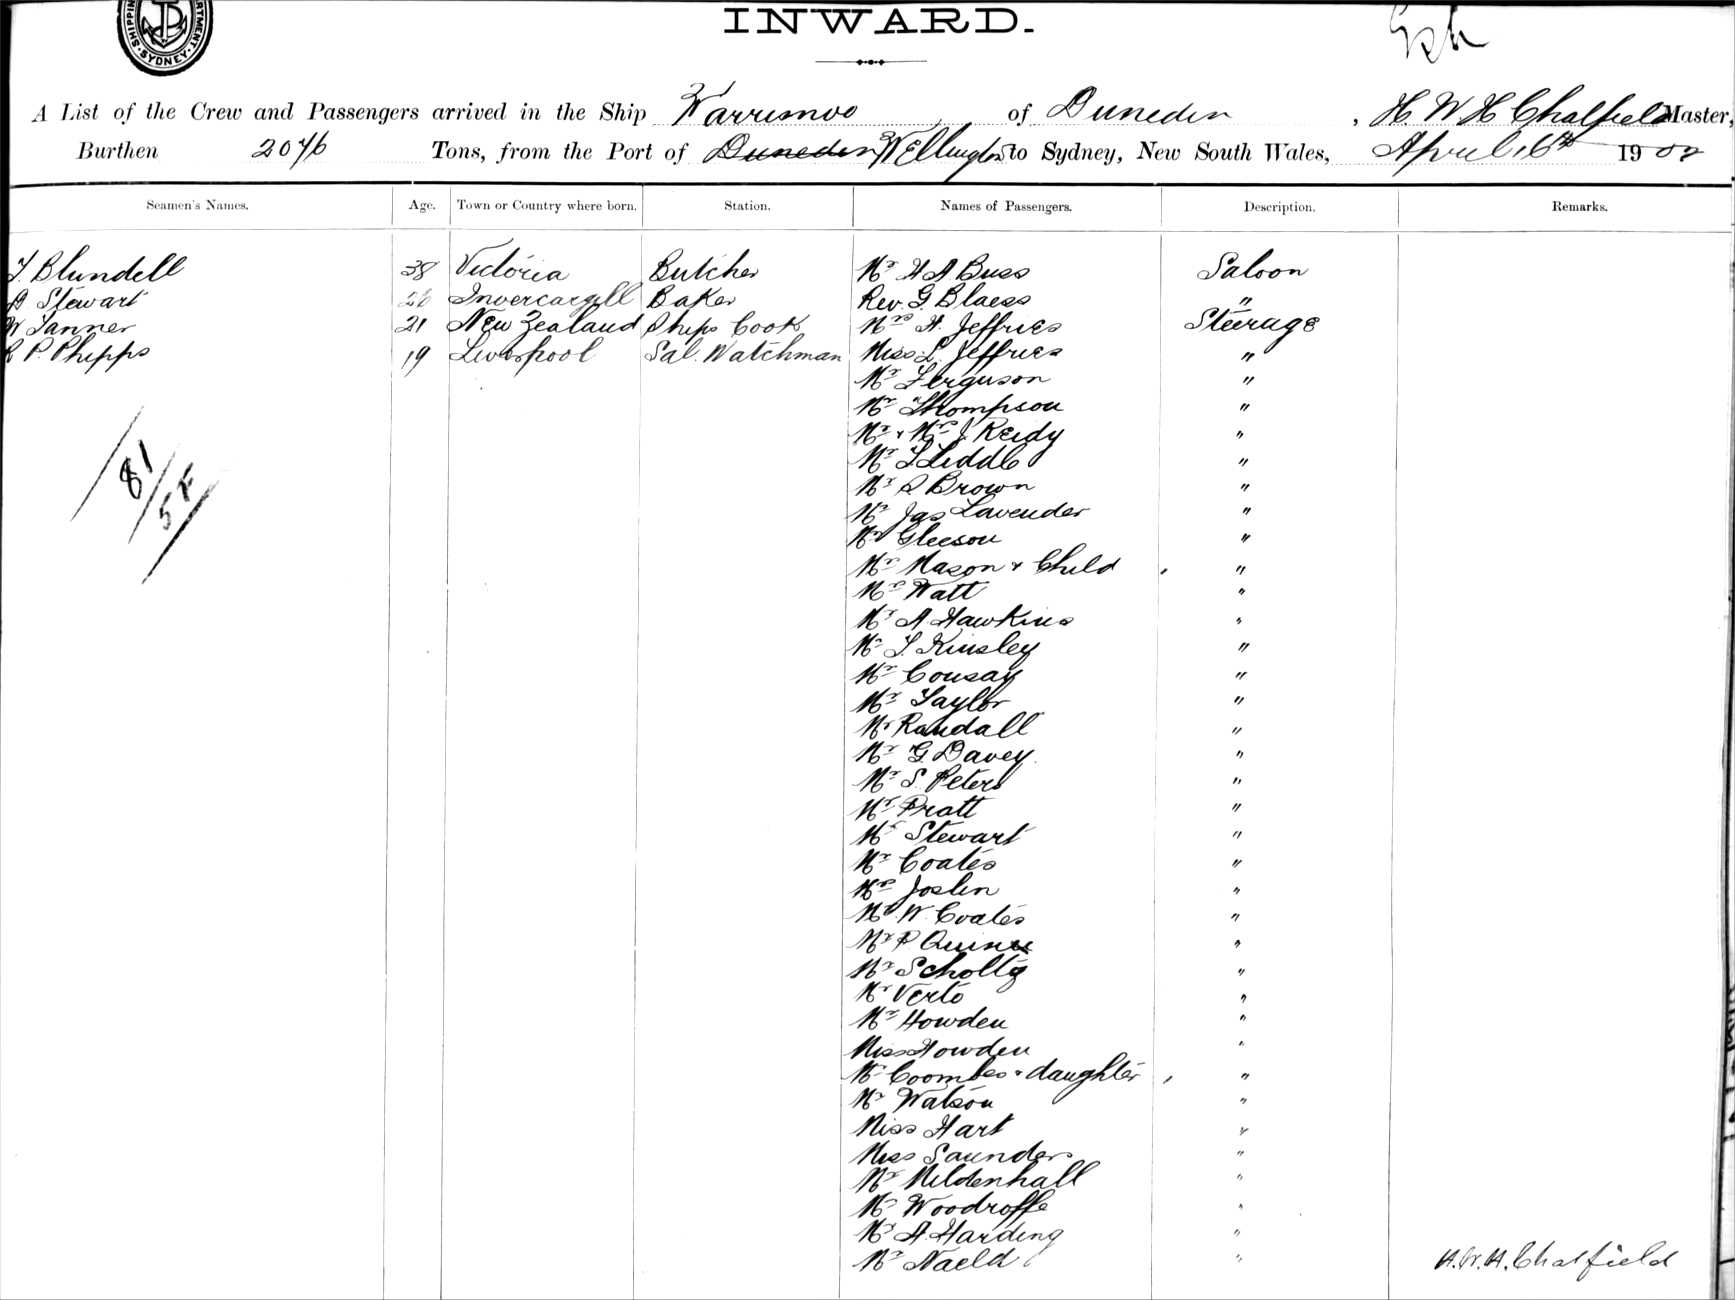 SHIPPING DEPARTMENT. SYDNEY.
INWARD.
A List of the Crew and Passengers arrived in the Ship Warrimoo of Duneden, H. W. H Chatfield Master,
Burthen 2076 Tons, from the Port of Duneden Wellington to Sydney, New South Wales, April 6th 1902
Seamen's Names. Age. Town or Country where born. Station. Names of Passengers. Description. Remarks.
T. Blundell 38 Victoria Butcher Mr H A Buss Saloon
Stewart Invercargill Baker Rev. G. Blaess "
W Tanner 21 New Zealand Ships Cook Mrs H. Jeffries Steerage
R P Phipps 19 Liverpool Sal. Watchman Miss L. Jeffries "
Mr Ferguson "
Mr Thompson "
Mr & Mrs J. Reidy "
81 Mr T Liddle "
Mr S Brown "
5 Mr Jas Lavender "
Mr Gleeson "
Mr Mason & Child "
Mrs Watt "
Mr A. Hawkins "
Mr T. Kinsley "
Mr Cousay "
Mr Taylor "
Mr Randall "
Mr G. Davey "
Mr S. Peters "
Mr Pratt "
Mr Stewart "
Mr Coates "
Mrs Joslin "
Mr W. Coates "
Mr P Quinn "
Mr Scholtz "
Mr Verto "
Mr Howden "
Miss Howden "
Mr Coombes & daughter "
Mr Watson "
Miss Hart "
Miss Saunders "
Mr Mildenhall "
Mr Woodroffe "
Mr A. Harding "
Mr Naeld " H. W. H. Chatfield